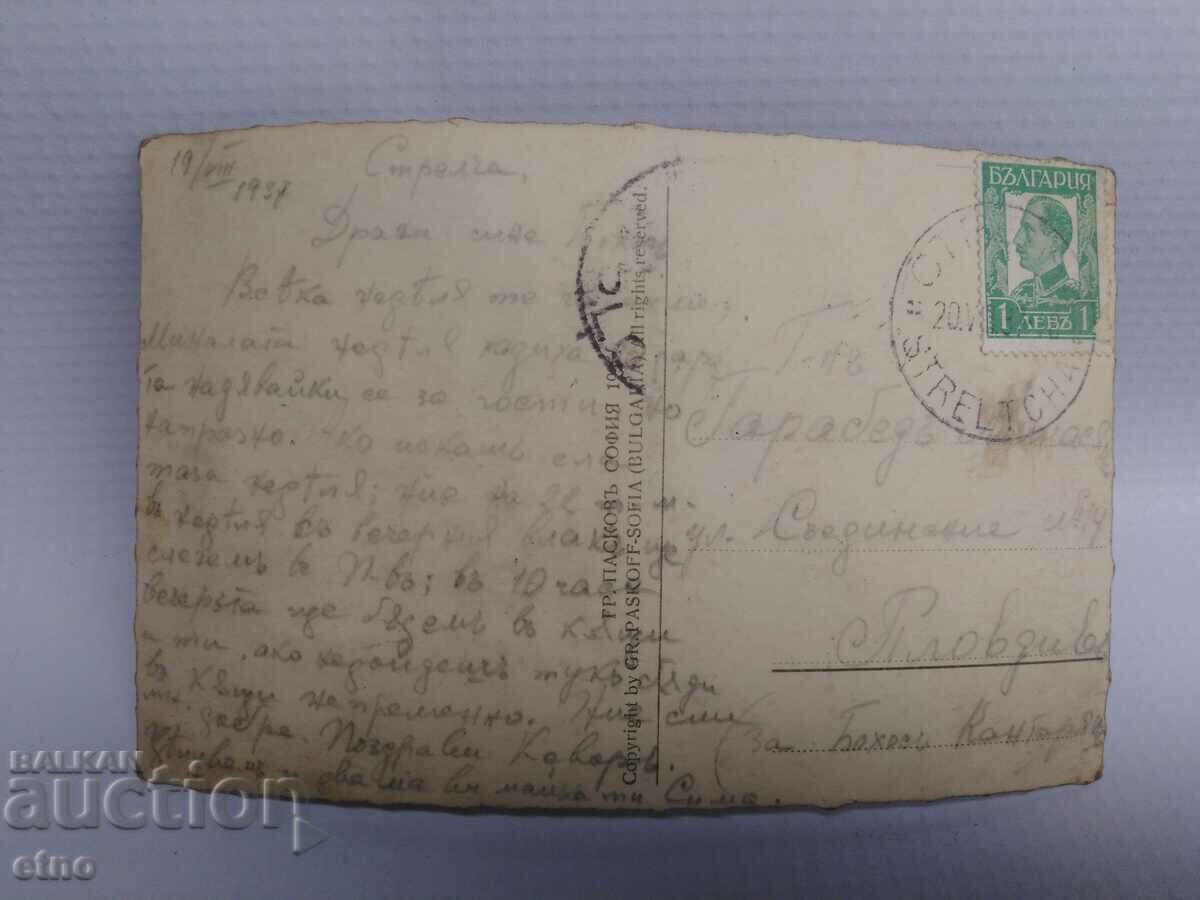 19/VIII 1937
Стрелча,
Драги сине
Всѣка недѣля те
Миналата недѣля
та надявайки се за гости но
напразно. Ако искашъ
тази недѣля; ние на 22 т. м.
въ недѣля съ вечерния влакъ ще
слеземъ въ П-въ; въ 10 часа
вечерьта ще бѫдемъ въ кѫщи
а ти, ако не дойдешъ тукъ бѫди
въ кѫщи непременно. Ние сме
добре. Поздрави Кеворкъ.
двама ви майка ти Сима.
ФР. ПАСКОВЪ СОФИЯ 19
Copyright by GR. PASKOFF-SOFIA (BULGARIA) All rights reserved.
БЪЛГАРИЯ
1 ЛЕВЪ 1
20.V
STRELTCHA
Г-нъ
Гарабедъ
ул. Съединение №
Пловдивъ
(за Бохосъ
BALKAN
auction
etno